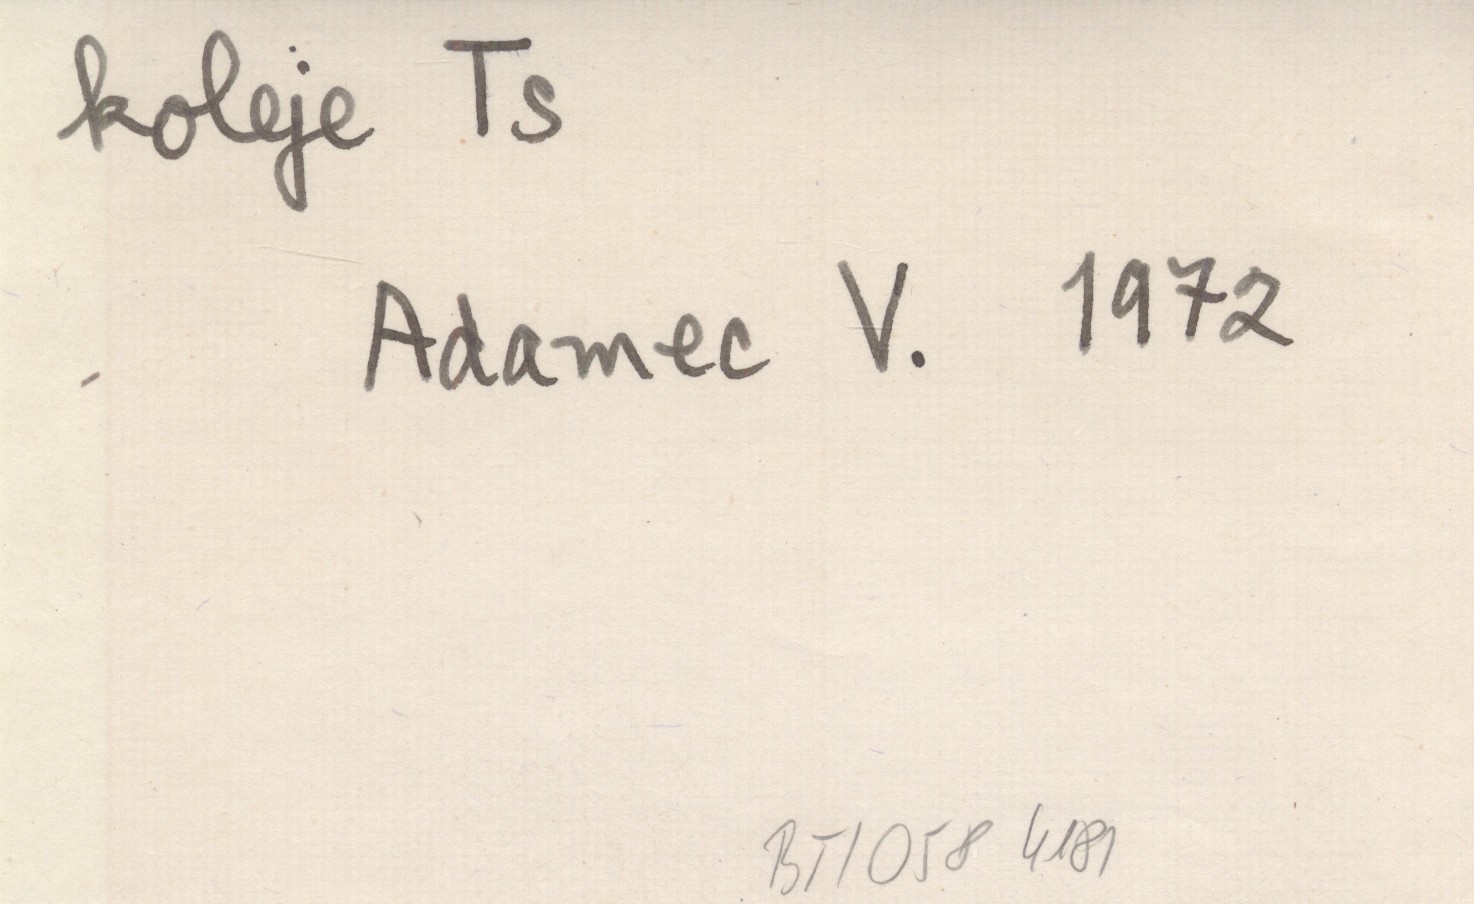 koleje Ts
Adamec V. 1972
BT/058 4181